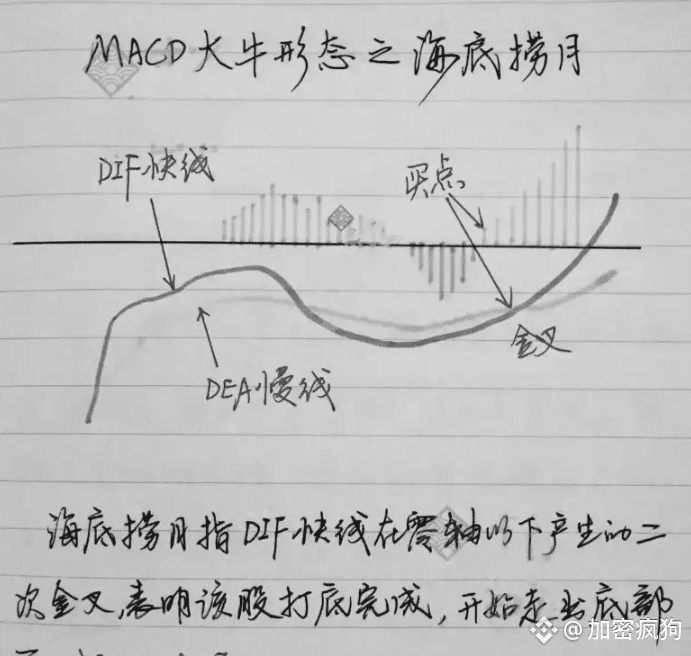 MACD大牛形态之海底捞月
DIF快线
买点
金叉
DEA慢线
海底捞月指DIF快线在零轴以下产生的二
次金叉,表明该股打底完成,开始走出底部
@加密疯狗